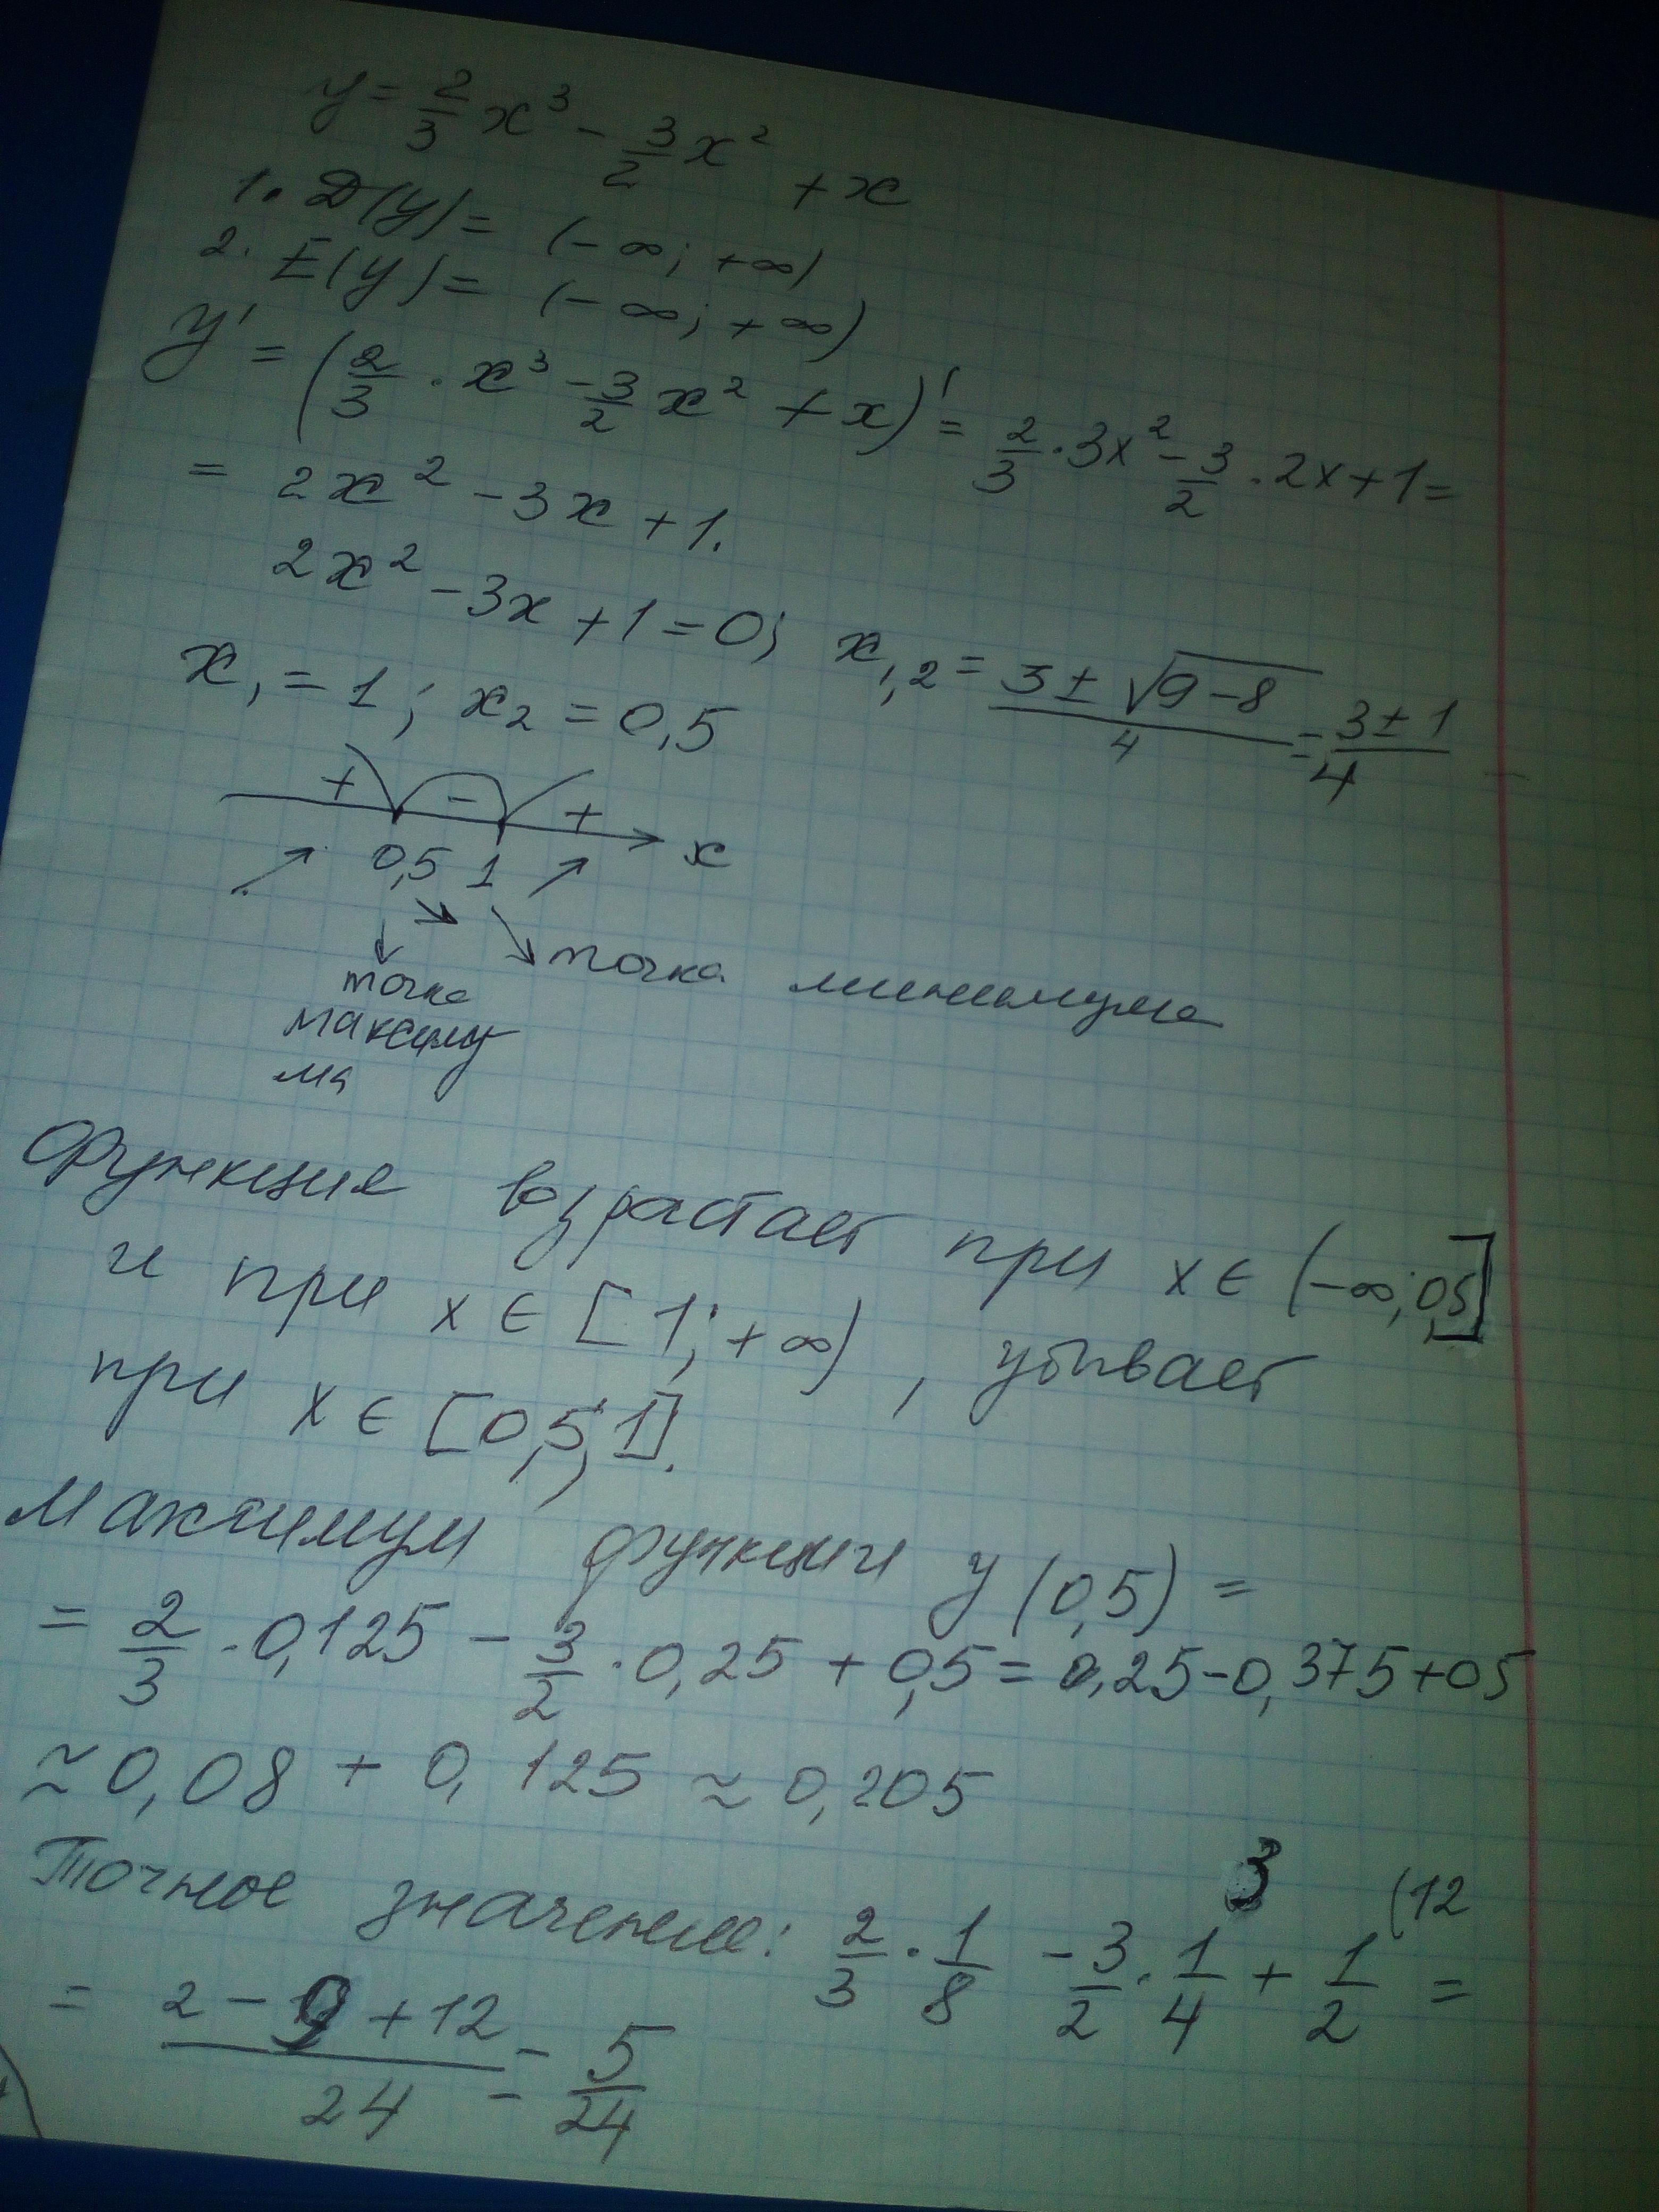 y = 2/3 x³ - 3/2 x² + x
1. D(y) = (-∞; +∞)
2. E(y) = (-∞; +∞)
y' = (2/3 · x³ - 3/2 x² + x)' = 2/3 · 3x² - 3/2 · 2x + 1 =
= 2x² - 3x + 1.
2x² - 3x + 1 = 0; x₁,₂ = (3 ± √(9-8))/4 = (3 ± 1)/4
x₁ = 1; x₂ = 0,5
+ - +
0,5 1 x
точка минимума
точка
максиму
ма
Функция возрастает при x ∈ (-∞; 0,5]
и при x ∈ [1; +∞), убывает
при x ∈ [0,5; 1].
Максимум функции y(0,5) =
= 2/3 · 0,125 - 3/2 · 0,25 + 0,5 = 0,25 - 0,375 + 05
≈ 0,08 + 0,125 ≈ 0,205
3 (12
Точное значение: 2/3 · 1/8 - 3/2 · 1/4 + 1/2 =
= (2 - 9 + 12)/24 = 5/24